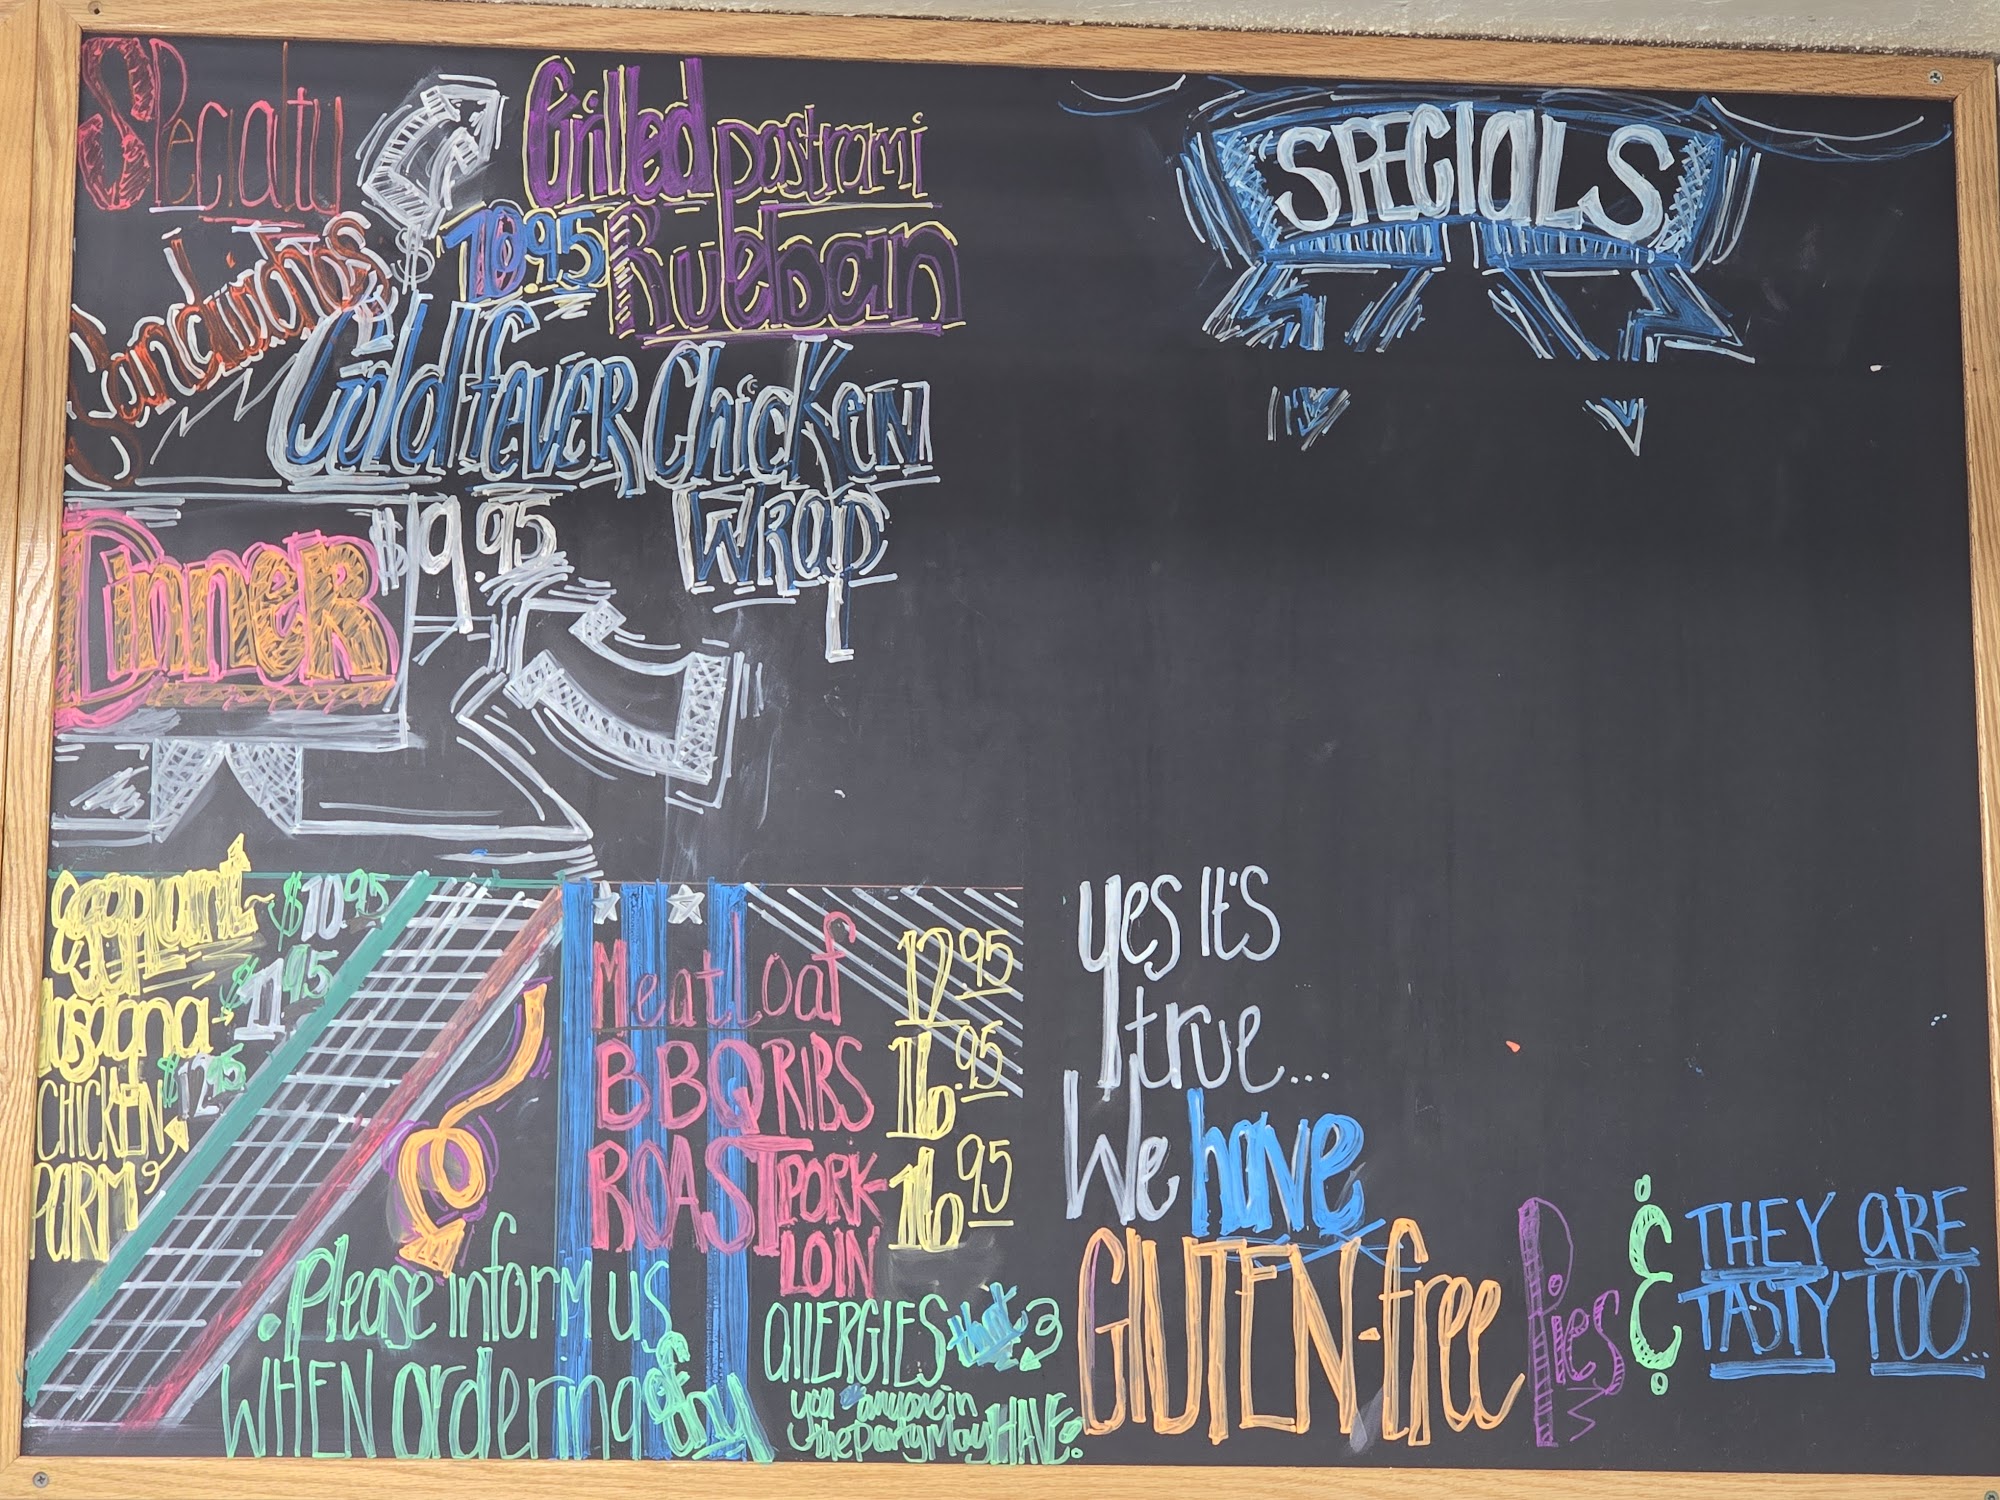 Specialty
Sandwiches
Grilled pastrami
$10.95 Rueban
Gold Fever Chicken
Wrap
$9.95
Dinner
eggplant $10.95
lasagna $11.95
CHICKEN $12.95
PARM
MeatLoaf 12.95
BBQ RIBS 16.95
ROAST PORK- 16.95
LOIN
Please inform us
WHEN ordering of any
AllERGIES that
you or anyone in
the party May HAVE.
SPECIALS
yes It's
true...
We have
GlUTEN-free Pies & THEY ARE
TASTY TOO...